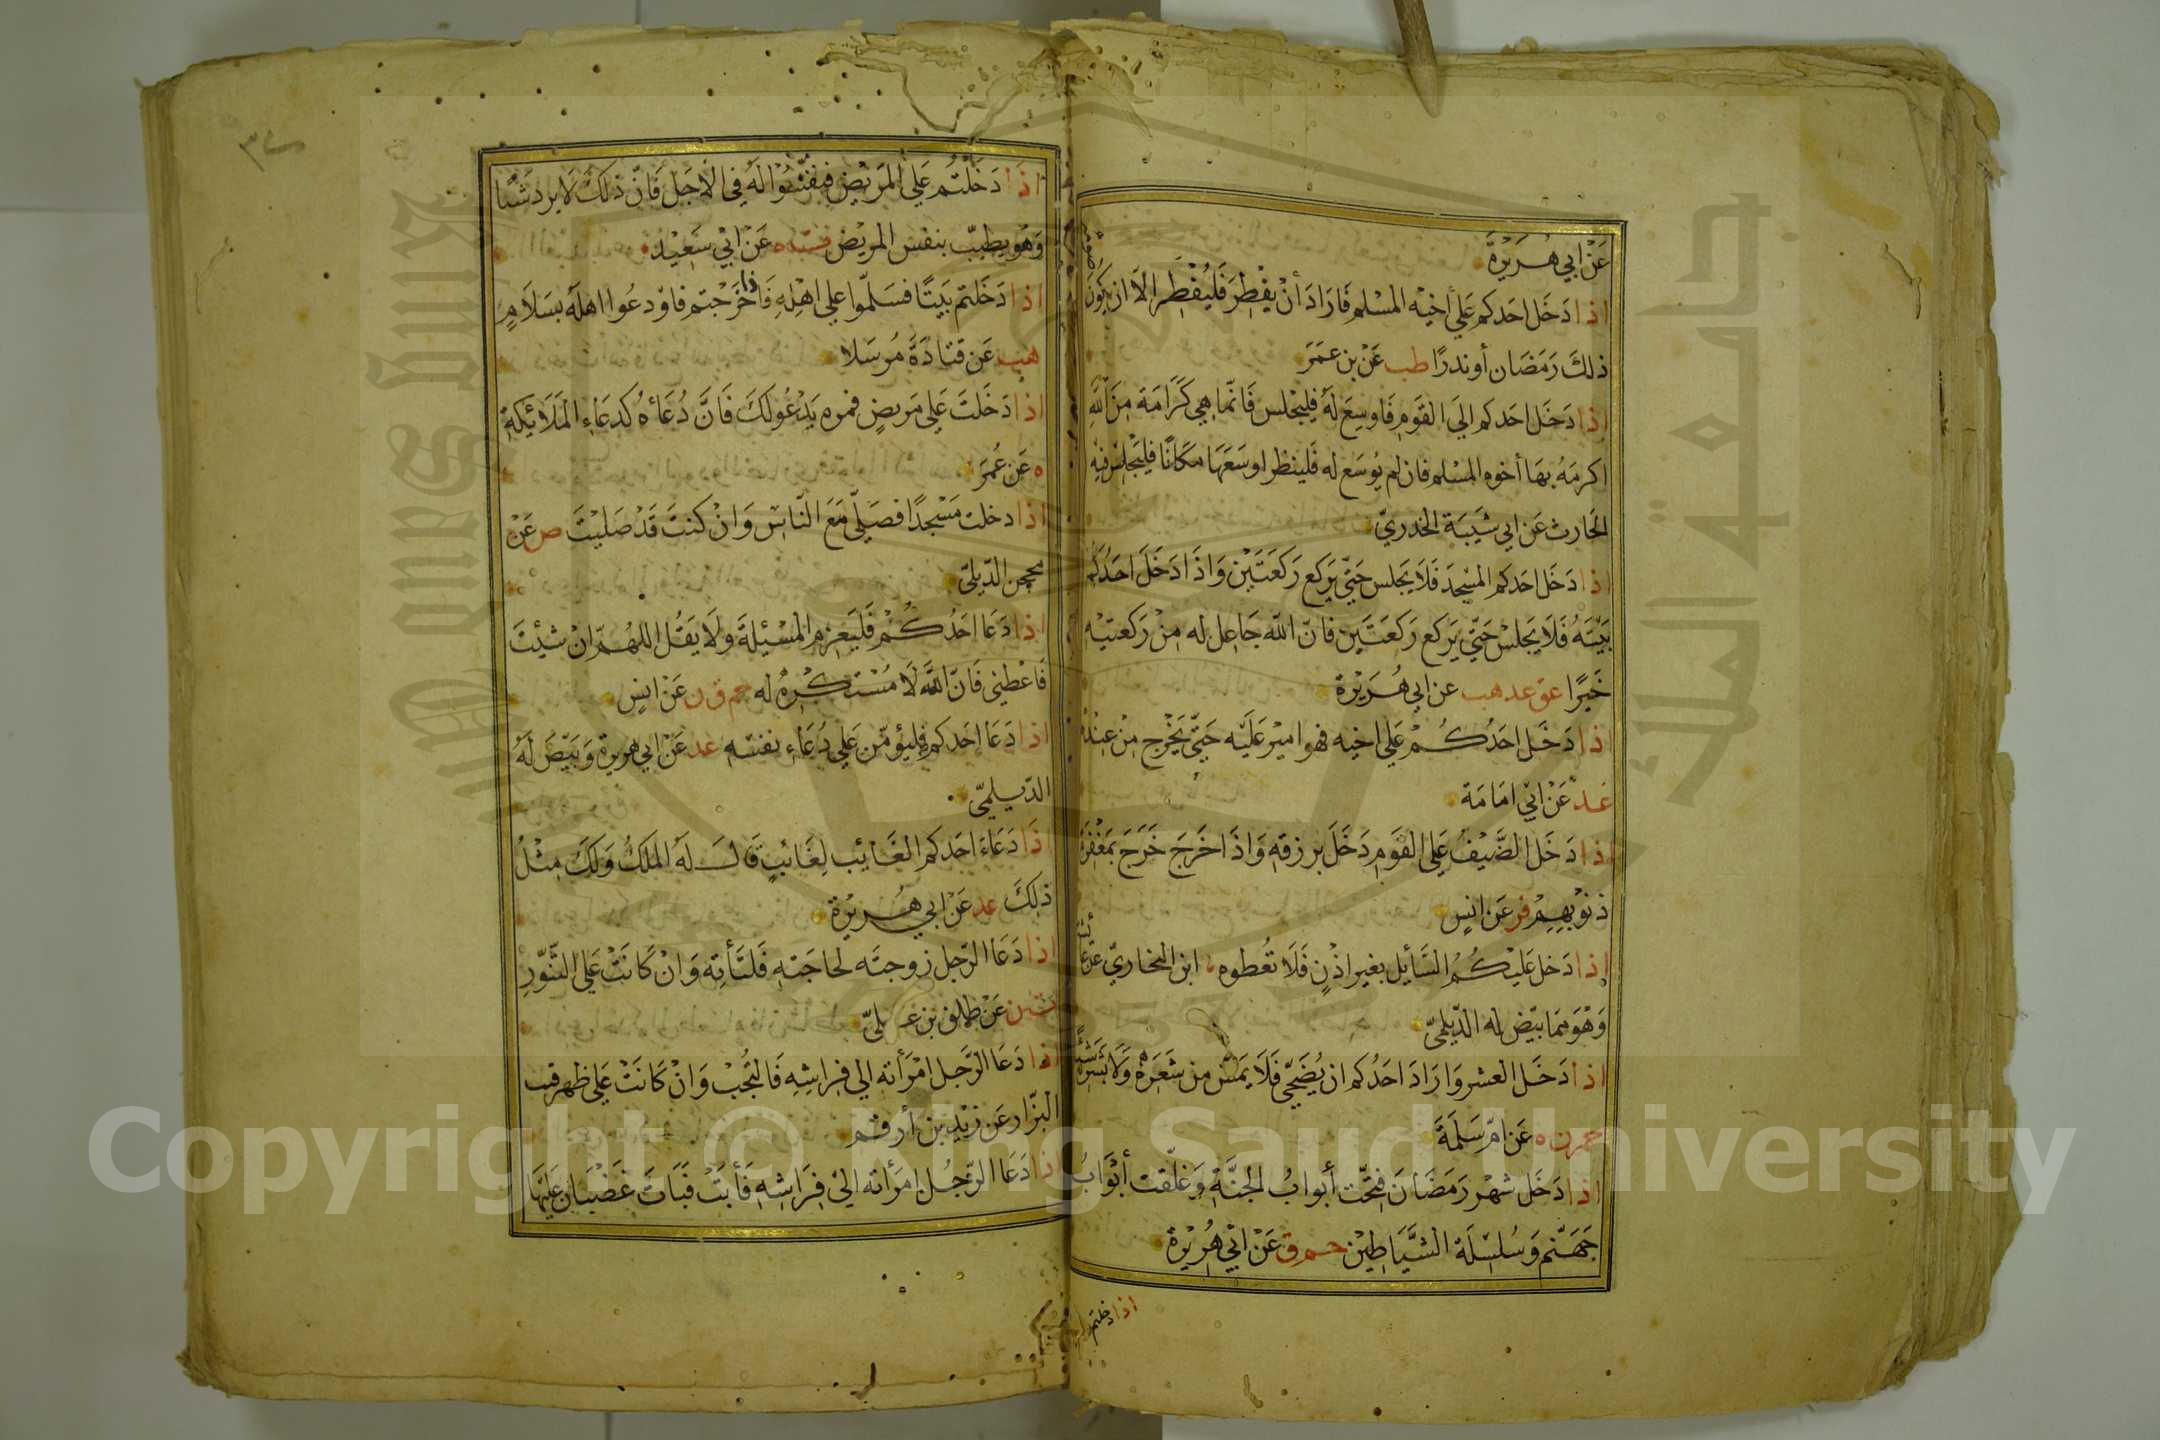 عَنْ ابي هُرَيْرَةَ
اذا دَخَل احَدكم عَلي أخيْه المسْلم فَارَادَ أنْ يفْطِرَ فَليُفْطِر الاّ ان يكونَ صومه
ذلكَ رَمَضَان أو نذرًا طب عَنْ بن عمَرَ
اذا دَخَل احَدكم الي القَومِ فَاوسِعَ لهُ فليجْلس فَانّما هِي كَرَامَة مِنَ اللّٰهِ
اكرمَهُ بهَا أخوه المسْلم فان لم يُوسَع له فَلينظر اوسَعَهَا مكَانًا فليَجْلِسْ فيْهِ
الحَارث عَن ابي شَيبَة الخدريّ
اذا دَخَل احَدكم المسْجدَ فَلَا يَجلس حَتّي يَركع رَكعَتَيْن وَاذَا دَخَلَ احَدُكم
بَيْتَهُ فَلَا يَجلسْ حَتّي يَركع رَكعَتَين فانّ اللّٰه جَاعِل له مِنْ رَكعتيْه
خَيرًا عق عد هب عن ابي هُرَيْرة
اذا دَخَل احَدُكُمْ عَلي اخيه فهو امير عَلَيْه حَتّي يَخْرج مِنْ عِنْدهُ
عد عَنْ ابي امَامَة
اذا دَخَل الضَّيْفُ عَلي القَومِ دَخَلَ برزقهِ وَاذَا خَرَجَ خَرَجَ بمَغْفِرة
ذنوْبهِمْ فر عَن انسٍ
اذا دَخل عَليْكُمُ السَّائِل بغير اذْنٍ فَلَا تُعْطوه ابن النجاريّ عَن عائشة
وَهْوَ مما بيّض له الدّيلميّ
اذا دَخَل العشر وَارَادَ احَدُكم ان يُضَحّي فَلَا يَمسَّ من شَعَرهْ وَلَا بَشَرهْ شَيْئًا
حم م ن ه عَن امّ سَلَمَة
اذا دَخَل شهْر رَمَضَانَ فتِحّت أبوابُ الجنّةِ وَغلّقت أبْوَابُ
جَهَنّم وَسُلْسِلَة الشَّيَاطِيْن حم ق عَنْ ابي هُرَيْرة
اذا دخلتم
٣٧
اذا دَخَلْتُم عَلي المَرَيْض فنفّسُوْا لهُ في الاجَل فَانّ ذلكَ لَا يردّ شَيْئا
وَهُو يطيبّ بنفس المريْض ت ه عَنْ ابيْ سَعيْد
اذا دَخَلتم بَيتًا فسَلّموا علي اهْلهِ فَاذا خَرَجْتم فاوْدعُوا اهلهُ بسَلَامٍ
هب عَن قتادَةَ مُرسَلا
اذا دَخَلتَ عَلي مَريضٍ فمره يَدْعُو لكَ فَانَّ دُعَاؤهُ كدعَاءِ المَلَائِكةِ
ه عَن عُمَرَ
اذا دخلت مَسْجدًا فصَلِّي مَعَ النّاسْ وَانْ كنتَ قَدْ صَليْتَ ص عَنْ
محجن الدّيليّ
اذا دَعَا احَدُكُمْ فَليَعزم المسْئلةَ ولَا يَقُل اللهُمّ انْ شئتَ
فَاعْطني فَانَّ اللّٰه لَا مُسْتكْرِهُ له حم ق ن عَنْ انسٍ
اذا دَعَا احَدكم فليؤمّن عَلي دُعَاء نفسه عد عَنْ ابي هريرة وَبَيّضَ لَهُ
الدّيلميّ
اذا دَعَاءَ احَدكم الغَائب لغَائبٍ قَالَ لهُ الملَكُ وَلكَ مِثْلُ
ذلكَ عد عَنْ ابي هُرَيرة
اذا دَعَا الرّجل زوجتَه لحاجَتهِ فَلتَأتِه وَانْ كَانَتْ عَلي التَّنّورِ
ت ن عَنْ طلق بن عَليّ
اذا دَعَا الرَّجل امْرَأته الي فِرَاشِهِ فَالتُجبْ وَانْ كَانَتْ عَلي ظهر قتب
البّزار عَن زيْد بن أرقم
اذا دَعَا الرّجُل امرَأته اليْ فِرَاشِهِ فَأبَتْ فَبَاتَ غَضْبَان عَليْهَا
Copyright © King Saud University